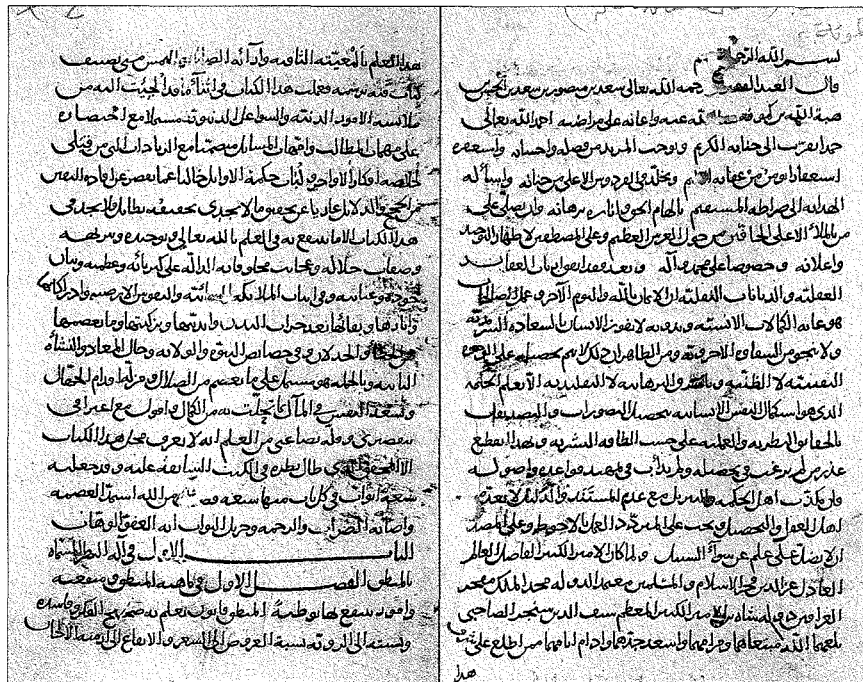 بسم الله الرحمن الرحيم
قال العبد الفقير رحمه الله تعالى سعد بن منصور بن سعد بن الحسن
هبة الله بن كمونه عنه واعانه على مراضيه احمد الله تعالى
حمدا يقرب الى جنابه الكريم ويوجب المزيد من فضله واحسانه واستغفره
استغفارا يؤمن من عقابه الاليم ويخلد في الفردوس الاعلى من جنانه واسأله
الهداية الى صراطه المستقيم بالهام الحق وانارة برهانه وان يصلي على
من بالملأ الاعلى الحافين من حول العرش العظيم وعلى المصطفين لاظهار التوحيد
واعلانه وخصوصا على محمد وآله وبعد فقد ارباب العقائد
العقلية والديانات النقلية ان الايمان بالله واليوم الآخر وعمل الصالحات
هو غاية الكمالات الانسية وبدونه لا يفوز الانسان بالسعادة السرمدية
ولا ينجو من الشقاوة الاخروية ومن الظاهر ان ذلك لا يتم تحصيله على الوجوه
اليقينية لا الظنية وبالطرق البرهانية لا التقليدية الا بعلم الحكمة
الذي هو استكمال النفس الانسانية بتحصيل التصورات والتصديقات
بالحقائق النظرية والعملية على حسب الطاقة البشرية وبهذا ينقطع
عذر من لم يرغب في تحصيله ولم يدأب في تمهيد قواعده واصوله
فان تكذيب اهل الحكمة والتنزيل مع عدم المستند والدليل لا يعده
اهل العقل والتحصيل ويجب على المتردد العمل بالاحوط وعلى المصدق
ان لا يضل على علم عن سواء السبيل ولما كان الامير الكبير الفاضل العالم
العادل عز الدين فخر الاسلام والمسلمين معتمد الدولة مجد الملك مفخر
العراقين دولة شاه بن الامير الكبير المعظم سيف الدين سنجر الصاحبي
بلغهما الله مبتغاهما ومرامهما واسعد جدهما وادام ايامهما ممن اطلع على شرف
هذا
هذا العلم بالمعيته الثاقبة وآرائه الصائبة التمس مني تصنيف
كتاب فيه برسمه فعملت هذا الكتاب في اثناء ما قد الجئت اليه من
ملابسة الامور الدنية والشواغل الدنيوية مشتملا مع اختصاره
على مهمات المطالب وامهات المسائل متضمنا مع الزيادات التي من قبلي
خلاصة افكار الاواخر ولباب حكمة الاوائل خاليا عما يقصر عن افادة اليقين
من الحجج والدلائل عاريا عن تحقيق ما لا يجدي تحقيقه بطائل ولا يجد في
هذا الكتاب الا ما ينتفع به في العلم بالله تعالى وتوحيده وتنزيهه
وصفات جلاله وعجائب مخلوقاته الدالة على كبريائه وعظمته وبيان
جوده وعنايته وفي اثبات الملائكة السمائية والنفوس الارضية وادراكاتها
وآثارها وبقائها بعد خراب البدن وابديتها وتزكيتها وما يعصمها
من والخذلان وفي خصائص النبوة والولاية وحال المعاد والنشأة
الثانية وبالجملة هو مشتمل على ما يعصم من الضلال ومزلة اقدام الجهال
وتسعد النفس في المآل بما تجلت به من الكمال واقول مع اعترافي
بتقصيري وقلة بضاعتي من العلم انه لا يعرف محل هذا الكتاب
الا المحقق الذي طال نظره في الكتب السابقة عليه وقد جعلته
سبعة ابواب في كل باب منها سبعة فصول ومن الله استمد العصمة
واصابة الصواب والرحمة وجزيل الثواب انه العفو الوهاب
الباب الاول في آلة النظر المسماة
بالمنطق الفصل الاول في ماهية المنطق ومنفعته
وامور ينتفع بها توطئة المنطق قانون تعلم به صحيح الفكر وفاسده
ونسبته الى الروية نسبة العروض الى الشعر والايقاع الى ازمنة الالحان